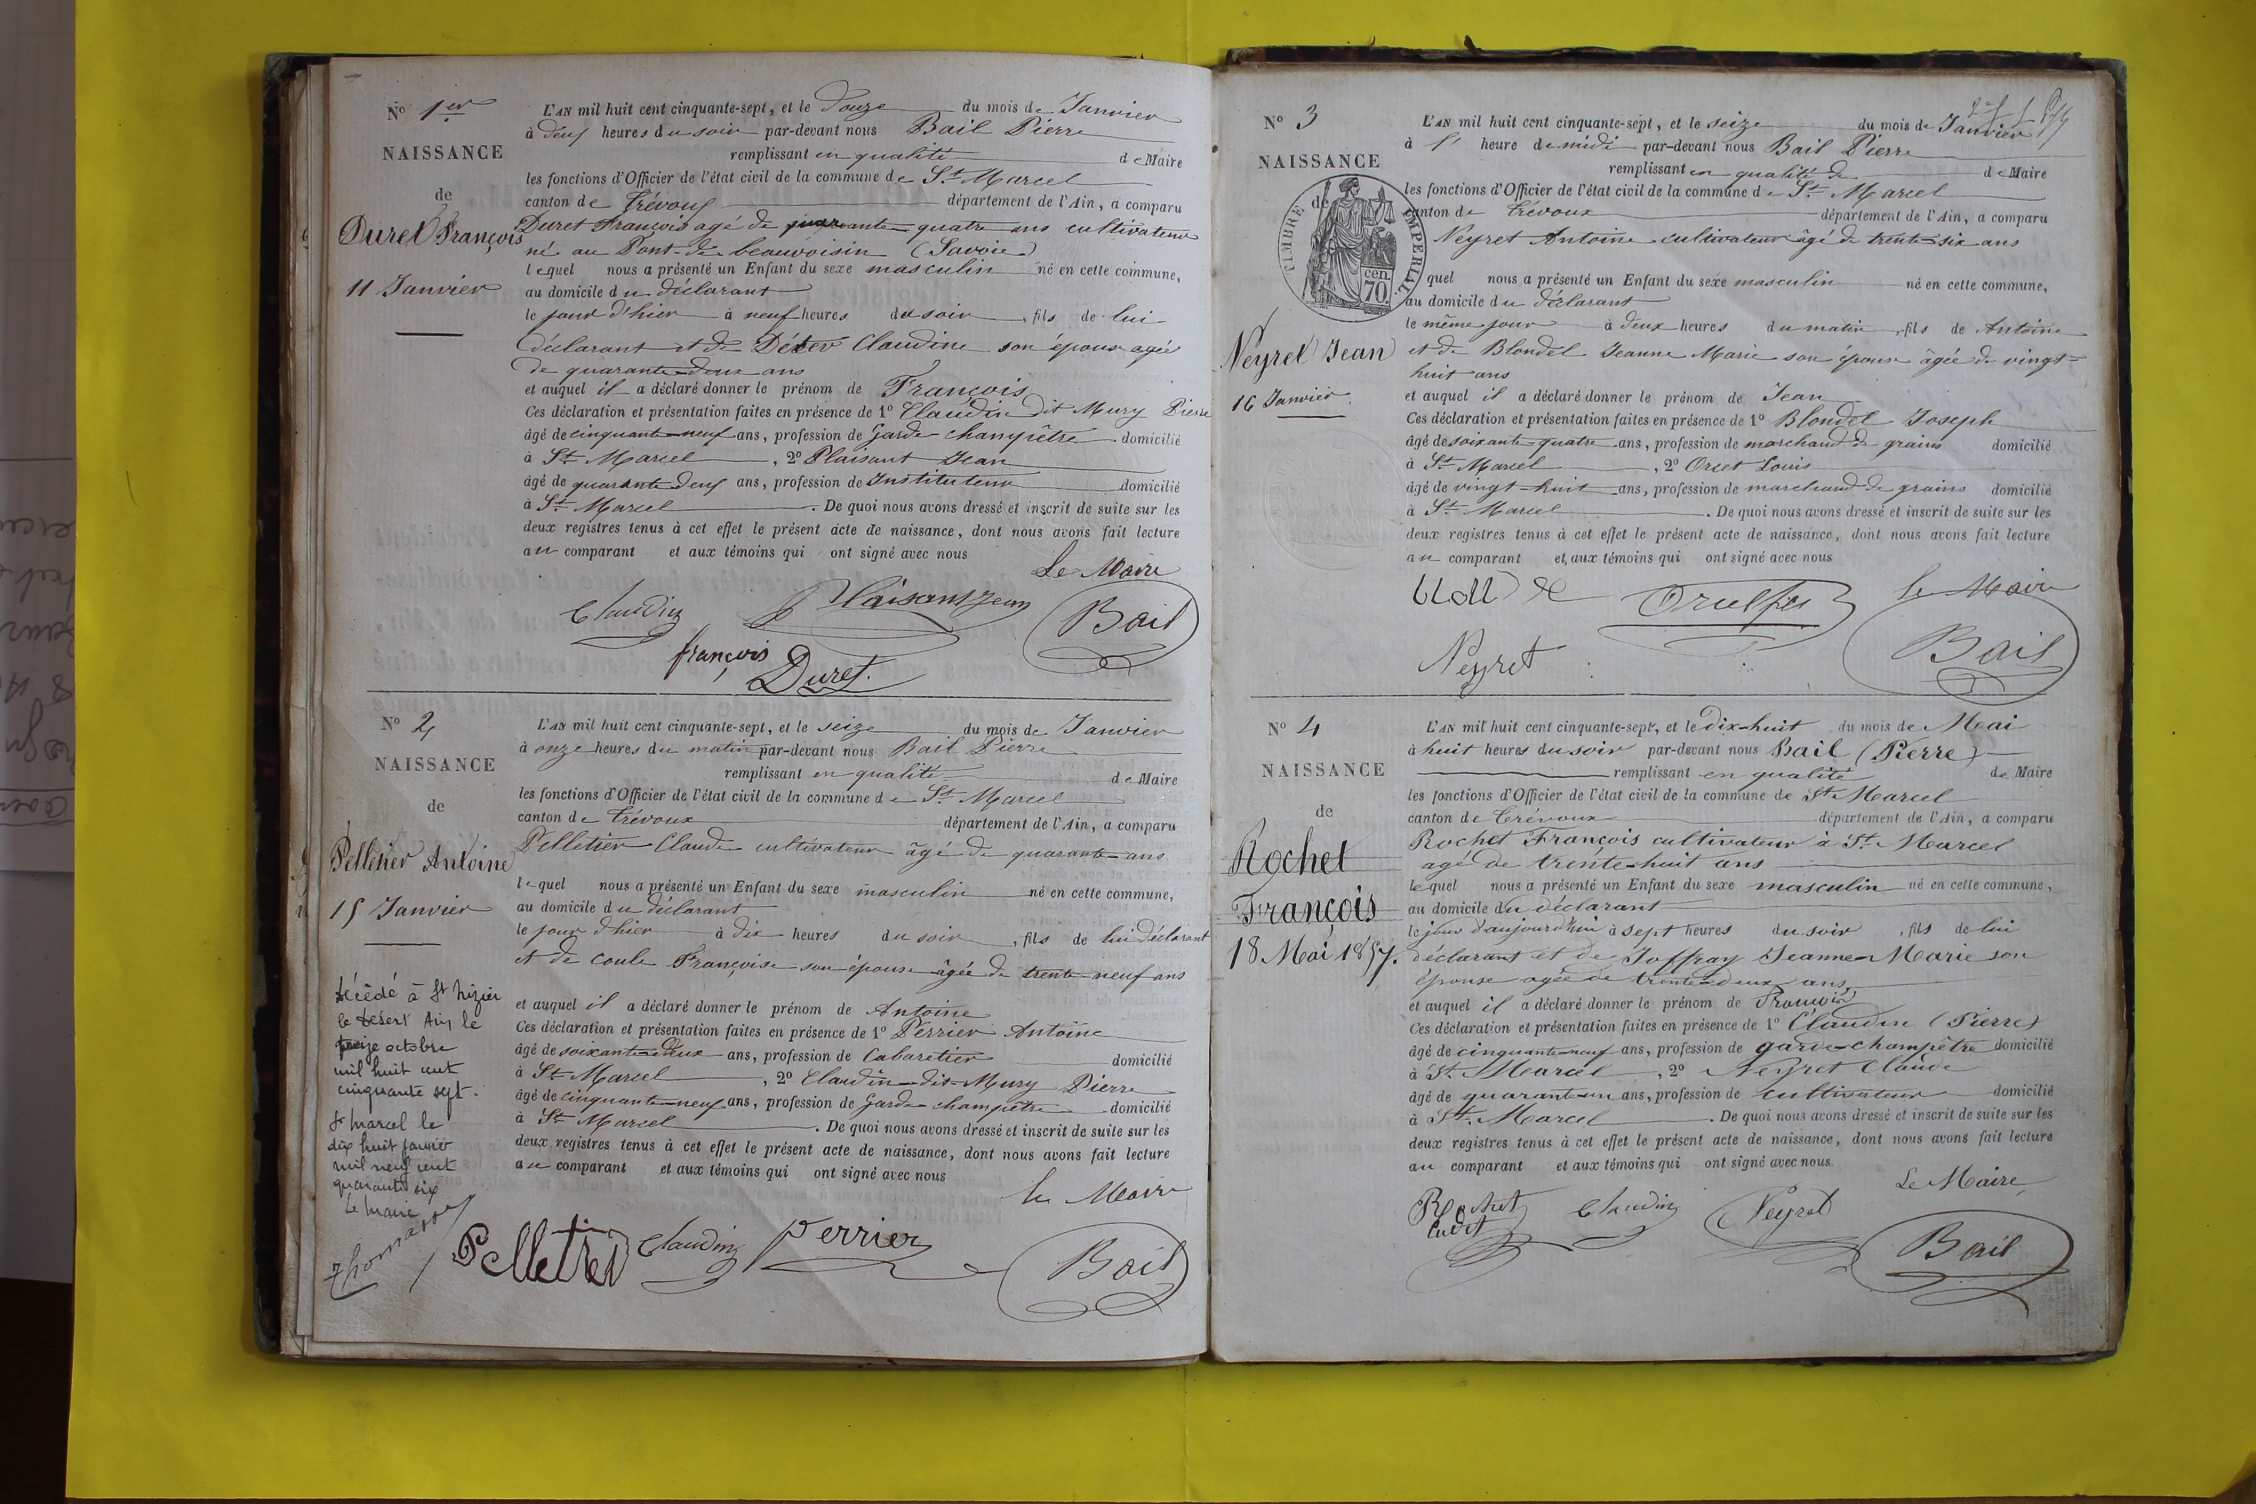 N° 1er
NAISSANCE
de
Duret François
11 Janvier
L'AN mil huit cent cinquante-sept, et le Douze du mois de Janvier
à deux heures du soir par-devant nous Bail Pierre
remplissant en qualité de Maire
les fonctions d'Officier de l'état civil de la commune de St Marcel
canton de Trévoux département de l'Ain, a comparu
Duret François agé de quarante quatre ans cultivateur
né au Pont-de beauvoisin (Savoie)
lequel nous a présenté un Enfant du sexe masculin né en cette commune,
au domicile du déclarant
le jour d'hier à neuf heures du soir, fils de lui
déclarant et de Claudine son épouse agée
de quarante-deux ans
et auquel il a déclaré donner le prénom de François
Ces déclaration et présentation faites en présence de 1° Claudin dit Mury Pierre
âgé de cinquante-neuf ans, profession de Garde champêtre domicilié
à St Marcel, 2° Plaisant Jean
âgé de quarante deux ans, profession de Instituteur domicilié
à St Marcel. De quoi nous avons dressé et inscrit de suite sur les
deux registres tenus à cet effet le présent acte de naissance, dont nous avons fait lecture
au comparant et aux témoins qui ont signé avec nous
Le Maire
Claudin Plaisant Jean Bail
françois Duret.
N° 2
NAISSANCE
de
Pelletier Antoine
15 Janvier
décédé à St Nizier
le Désert Ain le
octobre
mil huit cent
cinquante sept.
St Marcel le
dix huit janvier
mil neuf cent
quarante six
Le Maire
Thomasset
L'AN mil huit cent cinquante-sept, et le seize du mois de Janvier
à onze heures du matin par-devant nous Bail Pierre
remplissant en qualité de Maire
les fonctions d'Officier de l'état civil de la commune de St Marcel
canton de Trévoux département de l'Ain, a comparu
Pelletier Claude cultivateur âgé de quarante ans
lequel nous a présenté un Enfant du sexe masculin né en cette commune,
au domicile du déclarant
le jour d'hier à dix heures du soir, fils de lui déclarant
et de Coule Françoise son épouse âgée de trente-neuf ans
et auquel il a déclaré donner le prénom de Antoine
Ces déclaration et présentation faites en présence de 1° Perrier Antoine
âgé de soixante-deux ans, profession de Cabaretier domicilié
à St Marcel, 2° Claudin-dit-Mury Pierre
âgé de cinquante-neuf ans, profession de Garde champêtre domicilié
à St Marcel. De quoi nous avons dressé et inscrit de suite sur les
deux registres tenus à cet effet le présent acte de naissance, dont nous avons fait lecture
au comparant et aux témoins qui ont signé avec nous
Le Maire
Pelletier Claudin Perrier Bail
N° 3
NAISSANCE
de
TIMBRE IMPERIAL
cen.
70.
Neyret Jean
16 Janvier.
L'AN mil huit cent cinquante-sept, et le seize du mois de Janvier
à 1 heure de midi par-devant nous Bail Pierre
remplissant en qualité de de Maire
les fonctions d'Officier de l'état civil de la commune de St Marcel
canton de Trévoux département de l'Ain, a comparu
Neyret Antoine cultivateur âgé de trente-six ans
quel nous a présenté un Enfant du sexe masculin né en cette commune,
au domicile du déclarant
le même jour à deux heures du matin, fils de Antoine
et de Blondel Jeanne Marie son épouse âgée de vingt-
huit ans
et auquel il a déclaré donner le prénom de Jean
Ces déclaration et présentation faites en présence de 1° Blondel Joseph
âgé de soixante quatre ans, profession de marchand de grains domicilié
à St Marcel, 2° Orset Louis
âgé de vingt-huit ans, profession de marchand de grains domicilié
à St Marcel. De quoi nous avons dressé et inscrit de suite sur les
deux registres tenus à cet effet le présent acte de naissance, dont nous avons fait lecture
au comparant et aux témoins qui ont signé avec nous
Le Maire
Neyret Bail
N° 4
NAISSANCE
de
Rochet
François
18 Mai 1857.
L'AN mil huit cent cinquante-sept, et le dix-huit du mois de Mai
à huit heures du soir par-devant nous Bail (Pierre)
remplissant en qualité de Maire
les fonctions d'Officier de l'état civil de la commune de St Marcel
canton de Trévoux département de l'Ain, a comparu
Rochet François cultivateur à St Marcel
agé de trente-huit ans
lequel nous a présenté un Enfant du sexe masculin né en cette commune,
au domicile du déclarant
le jour d'aujourd'hui à sept heures du soir, fils de lui
déclarant et de Joffray Jeanne-Marie son
épouse agée de trente-deux ans,
et auquel il a déclaré donner le prénom de François
Ces déclaration et présentation faites en présence de 1° Claudin (Pierre)
âgé de cinquante-neuf ans, profession de garde-champêtre domicilié
à St Marcel, 2° Neyret Claude
âgé de quarante-un ans, profession de cultivateur domicilié
à St Marcel. De quoi nous avons dressé et inscrit de suite sur les
deux registres tenus à cet effet le présent acte de naissance, dont nous avons fait lecture
au comparant et aux témoins qui ont signé avec nous.
Le Maire
Rochet Claudin Neyret Bail
Cadet